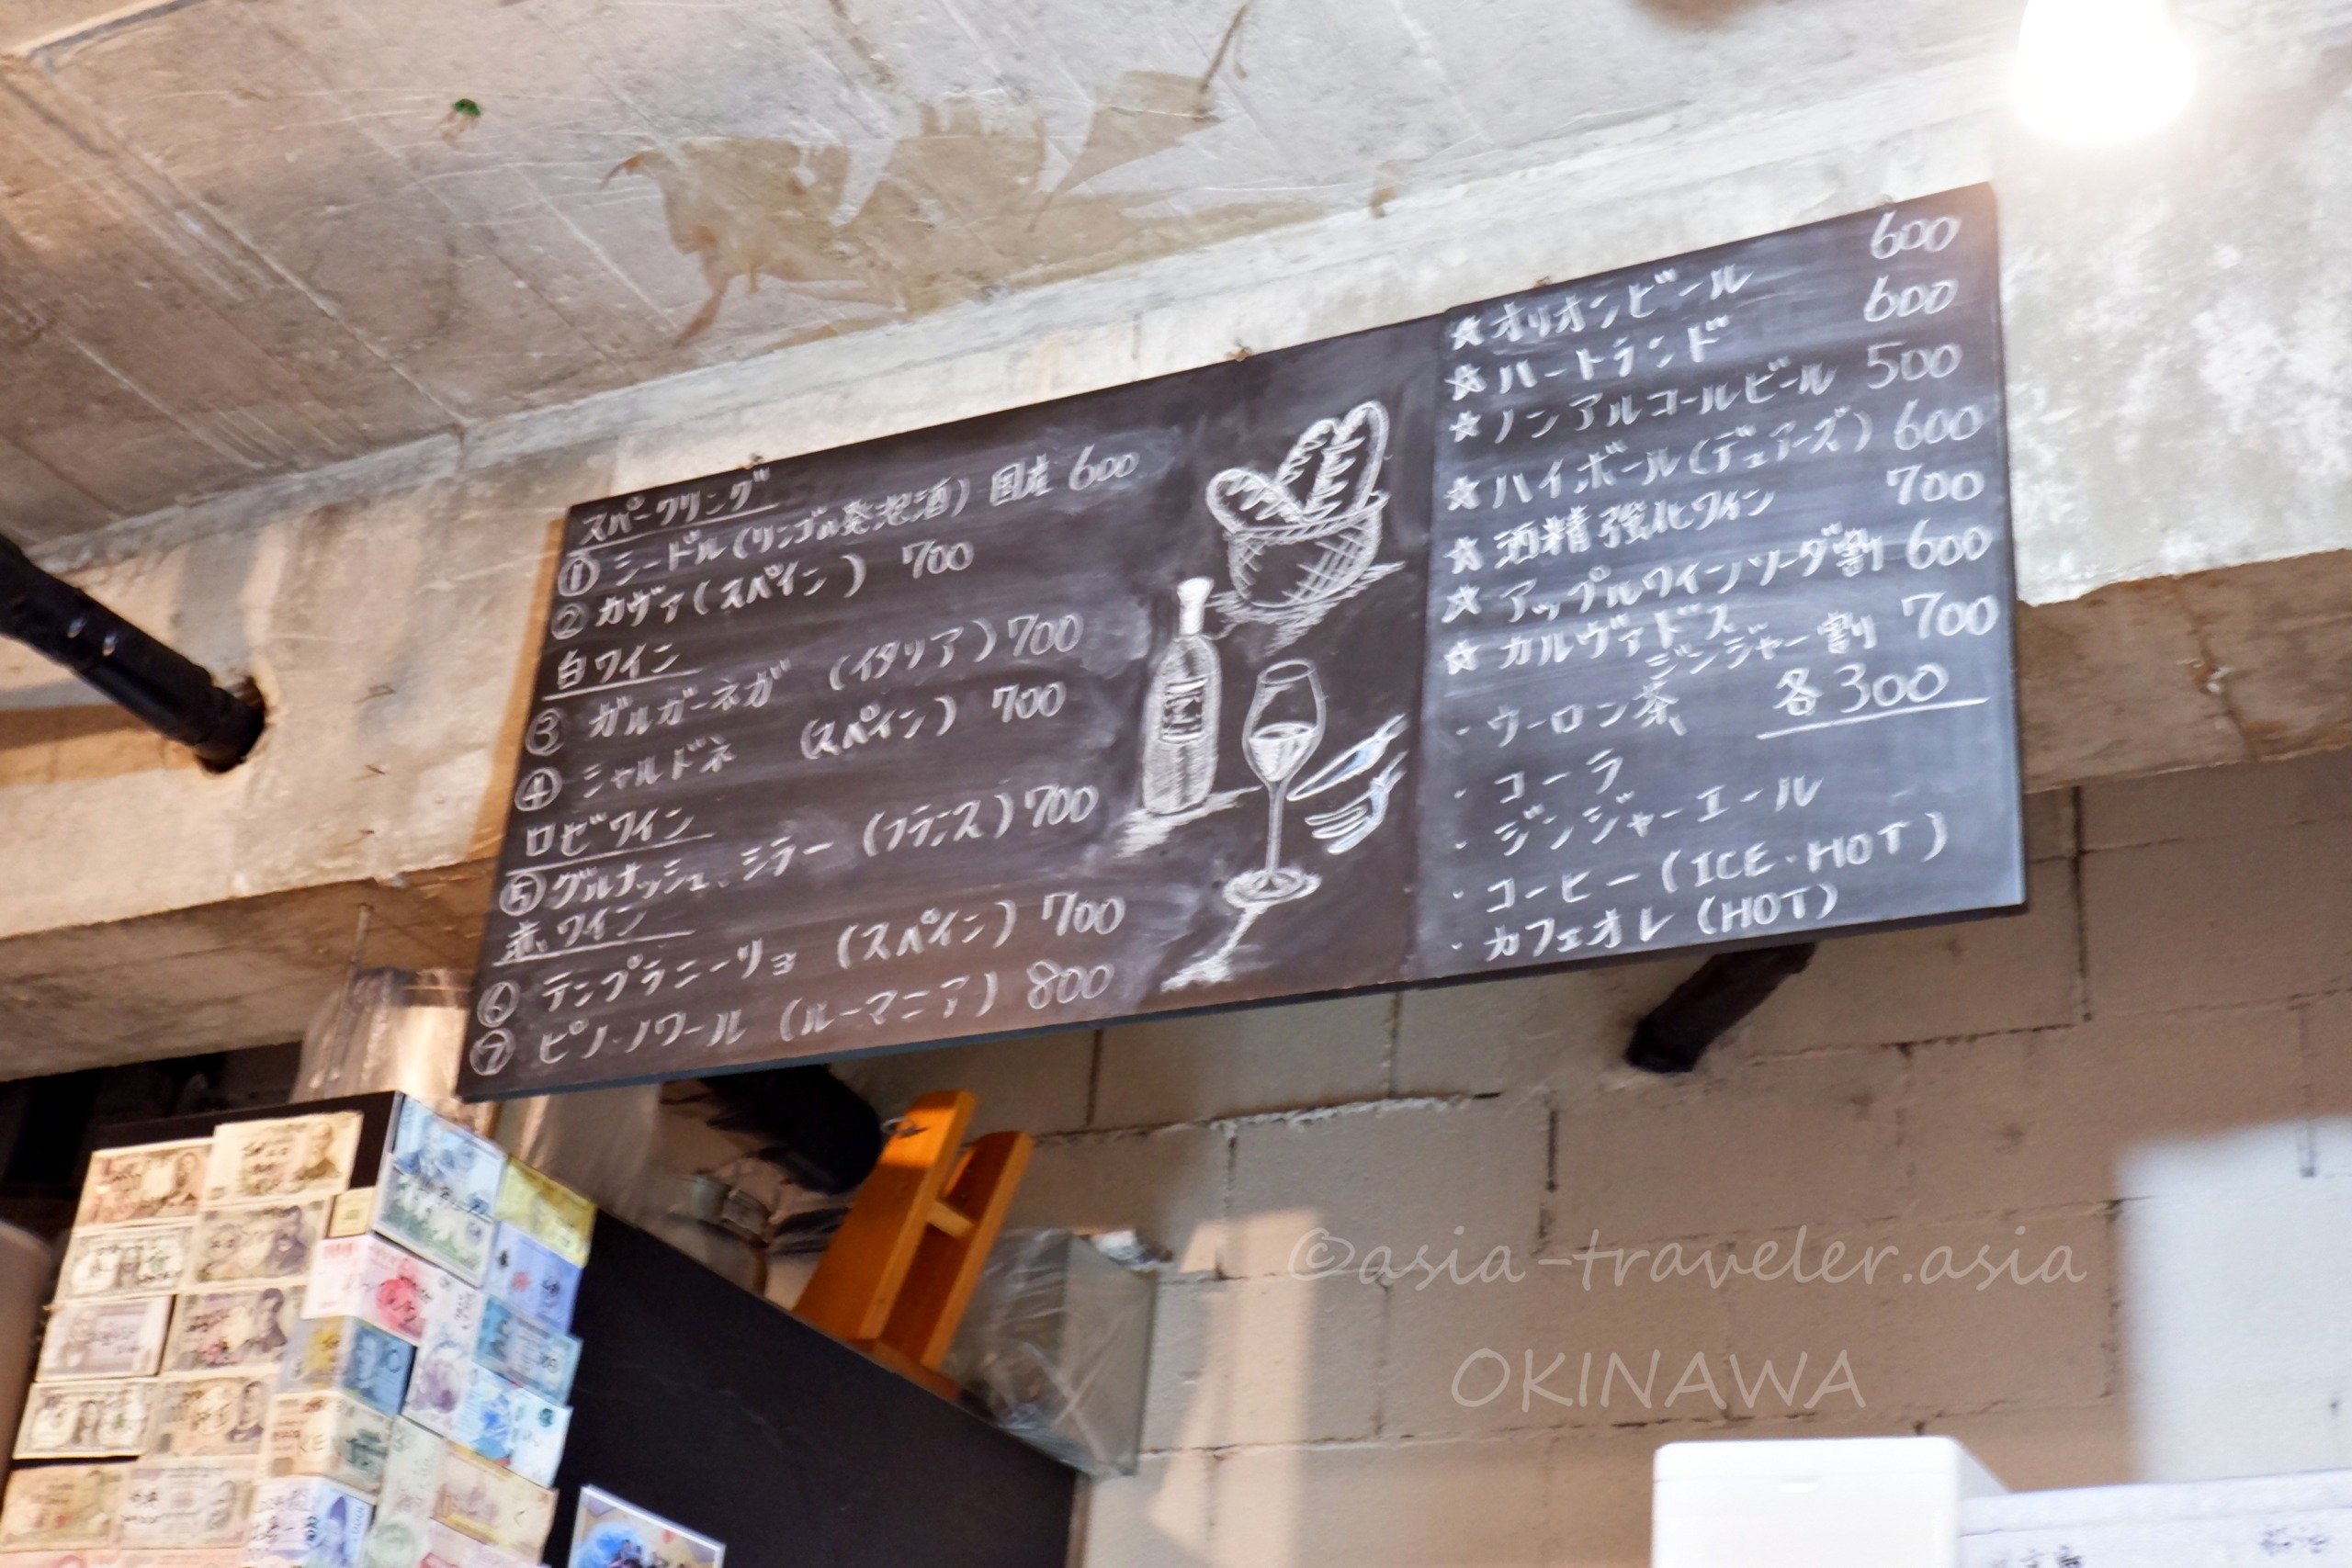 スパークリング
① シードル(リンゴの発泡酒) 国産 600
② カヴァ(スペイン) 700
白ワイン
③ ガルガーネガ (イタリア) 700
④ シャルドネ (スペイン) 700
ロゼワイン
⑤ グルナッシュ、シラー (フランス) 700
赤ワイン
⑥ テンプラニーリョ (スペイン) 700
⑦ ピノ・ノワール (ルーマニア) 800
☆ オリオンビール 600
☆ ハートランド 600
☆ ノンアルコールビール 500
☆ ハイボール(デュアーズ) 600
☆ 酒精強化ワイン 700
☆ アップルワインソーダ割 600
☆ カルヴァドス
ジンジャー割 700
・ウーロン茶 各300
・コーラ
・ジンジャーエール
・コーヒー(ICE・HOT)
・カフェオレ(HOT)
©asia-traveler.asia
OKINAWA